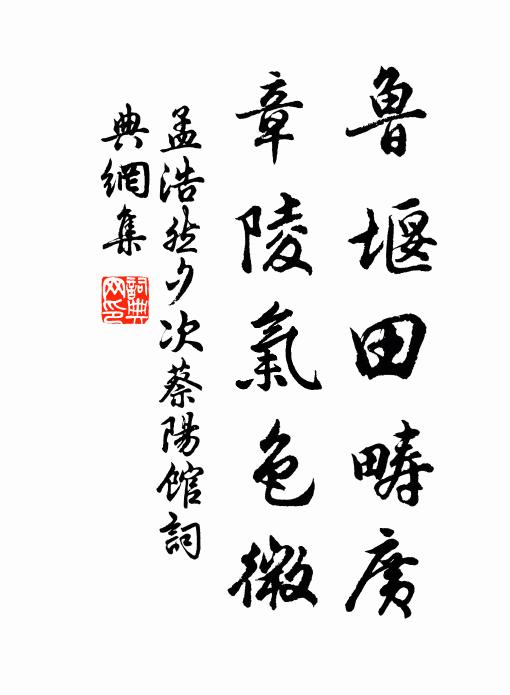 魯堰田疇廣
章陵氣色微
孟浩然夕次蔡陽館詞
典網集
詞典
网印